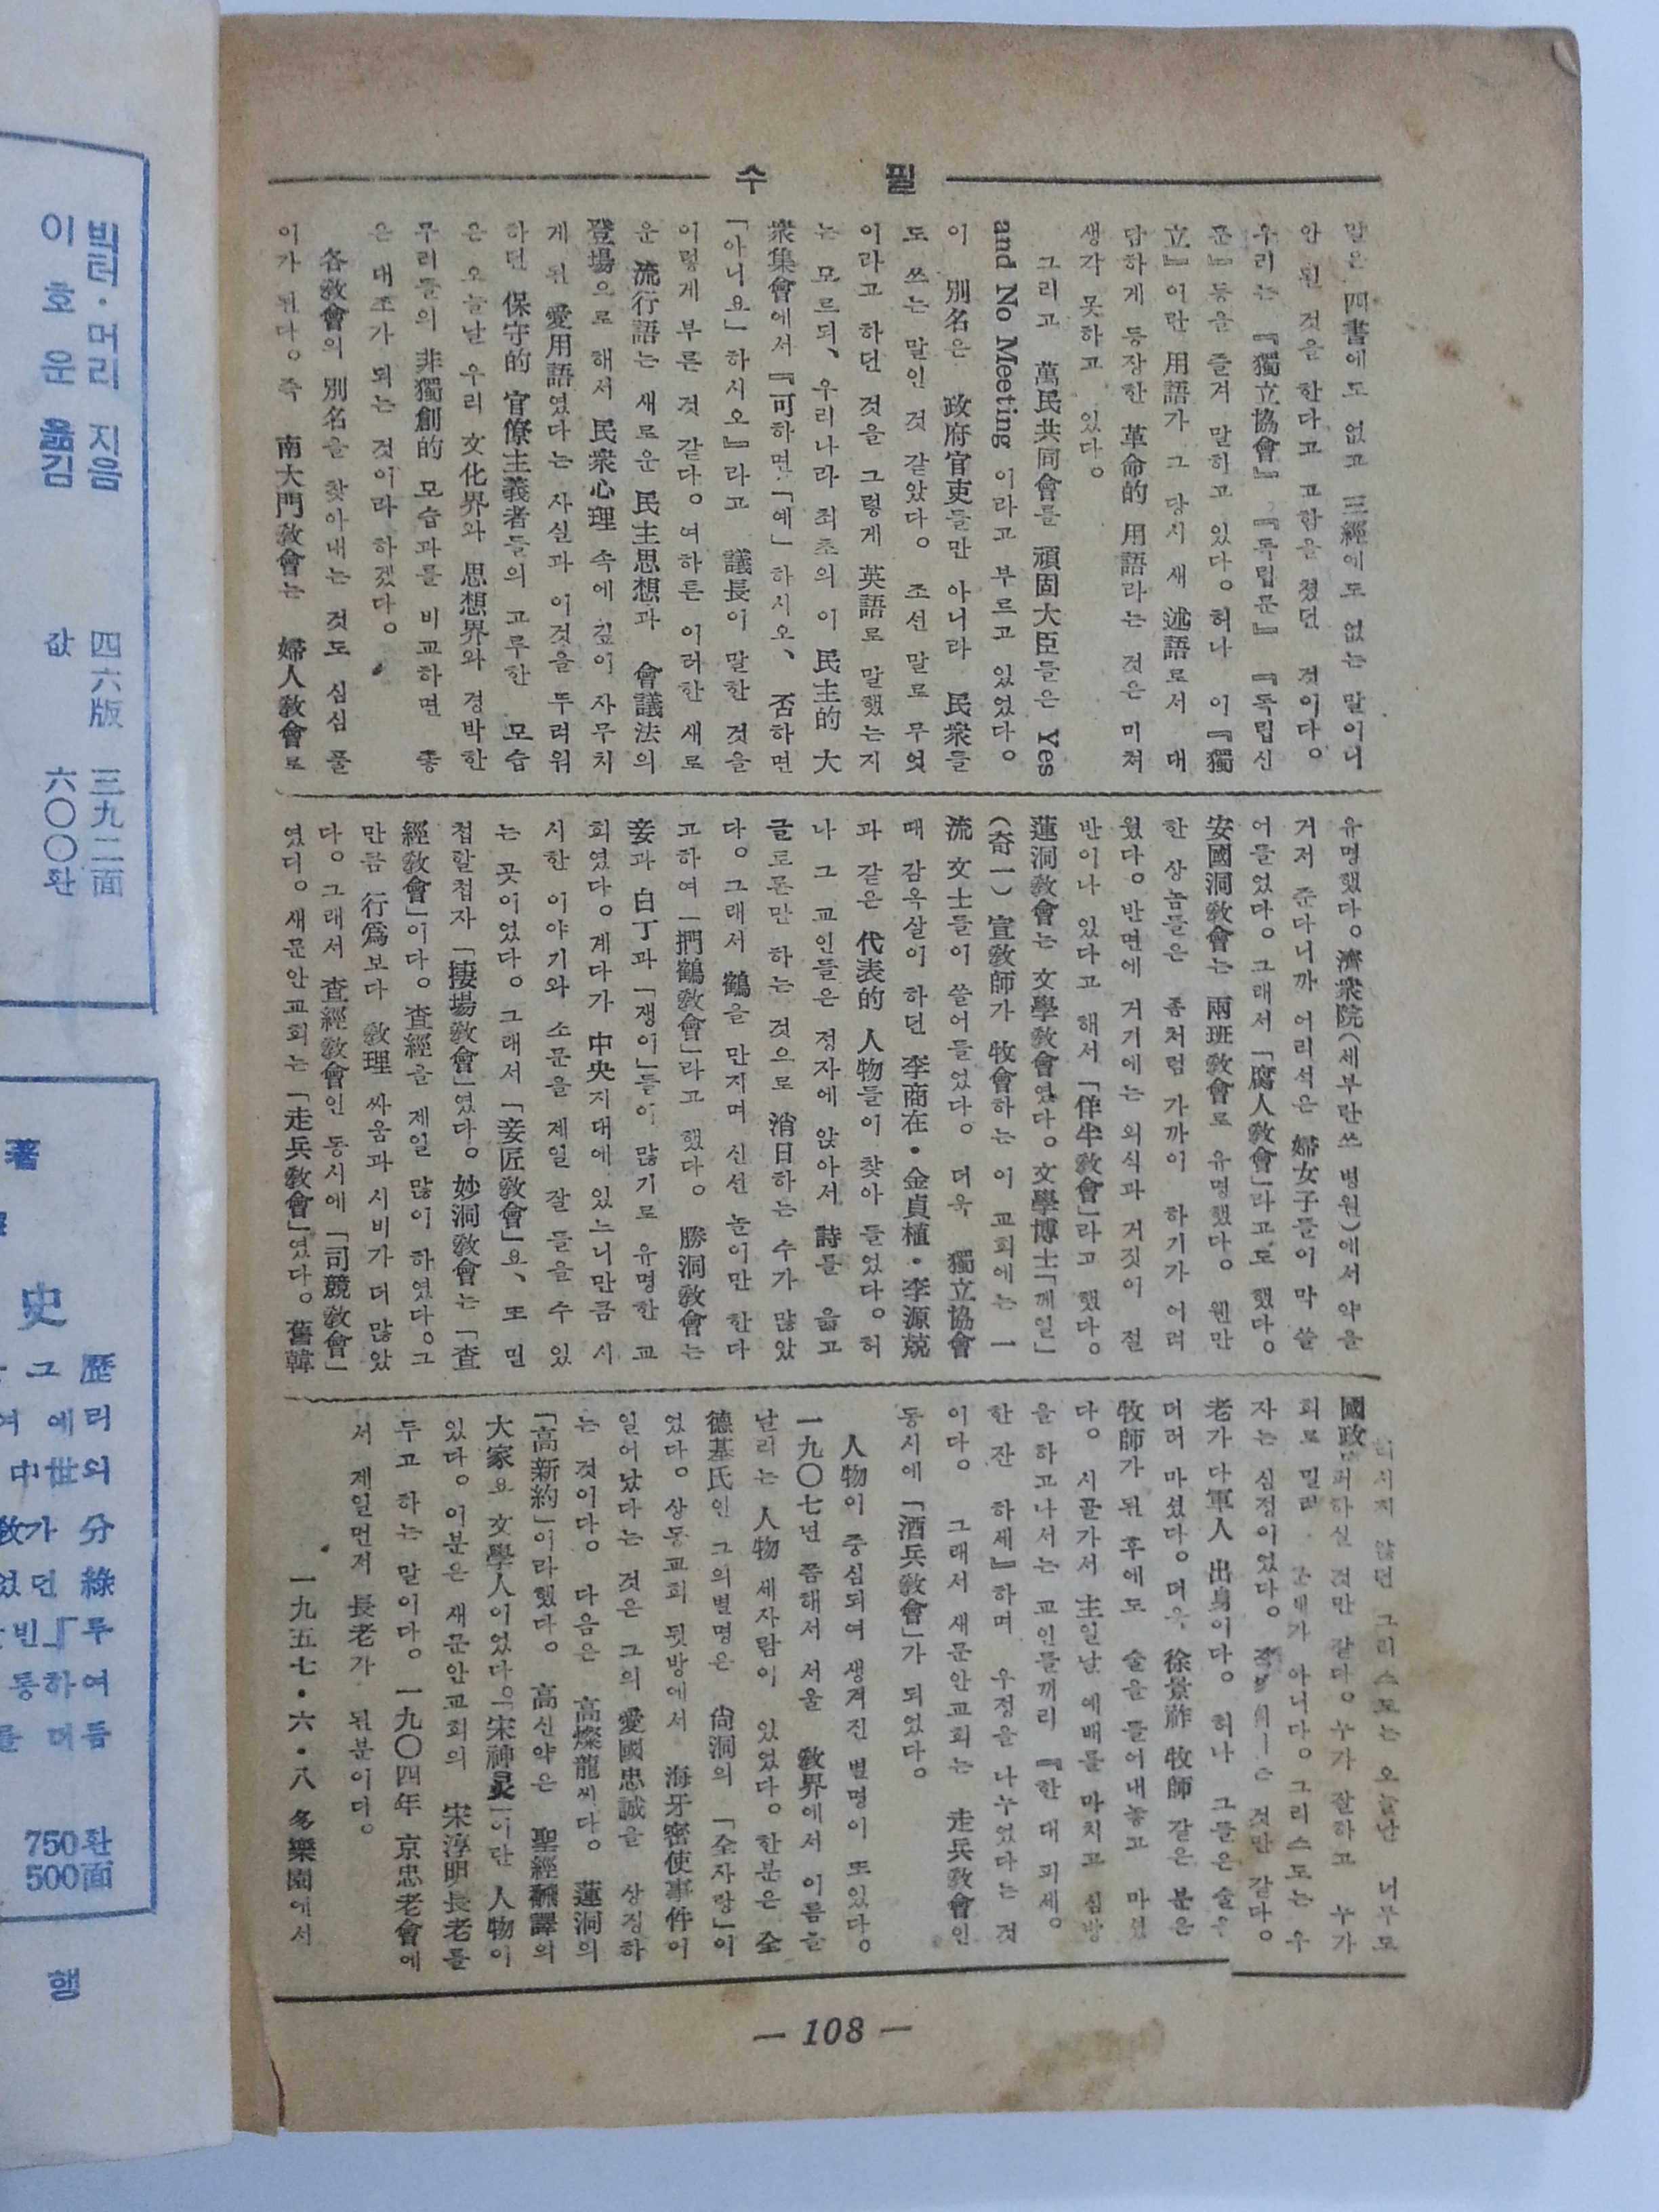 수 필
말은 四書에도 없고 三經에도 없는 말이니
안 된 것을 한다고 고함을 쳤던 것이다。
우리는 『獨立協會』 『독립문』 『독립신
문』등을 즐겨 말하고 있다。허나 이 『獨
立』이란 用語가 그 당시 새 述語로서 대
담하게 등장한 革命的 用語라는 것은 미쳐
생각 못하고 있다。
그리고 萬民共同會를 頑固大臣들은 Yes
and No Meeting 이라고 부르고 있었다。
이 別名은 政府官吏들만 아니라 民衆들
도 쓰는 말인 것 같았다。 조선 말로 무엇
이라고 하던 것을 그렇게 英語로 말했는지
는 모르되、우리나라 최초의 이 民主的 大
衆集會에서 『可하면「예」하시오、否하면
「아니요」하시오』라고 議長이 말한 것을
이렇게 부른 것 같다。여하튼 이러한 새로
운 流行語는 새로운 民主思想과 會議法의
登場으로 해서 民衆心理 속에 깊이 사무치
게 된 愛用語였다는 사실과 이것을 두려워
하던 保守的 官僚主義者들의 고루한 모습
은 오늘날 우리 文化界와 思想界와 경박한
무리들의 非獨創的 모습과를 비교하면 좋
은 대조가 되는 것이라 하겠다。
各敎會의 別名을 찾아내는 것도 심심 풀
이가 된다。즉 南大門敎會는 婦人敎會로
유명했다。濟衆院(세부란쓰 병원)에서 약을
거저 준다니까 어리석은 婦女子들이 막 쏠
어들었다。그래서 「腐人敎會」라고도 했다。
安國洞敎會는 兩班敎會로 유명했다。웬만
한 상놈들은 좀처럼 가까이 하기가 어려
웠다。반면에 거기에는 외식과 거짓이 절
반이나 있다고 해서 「佯半敎會」라고 했다。
蓮洞敎會는 文學敎會였다。文學博士「께일」
(奇一) 宣敎師가 牧會하는 이 교회에는 一
流 文士들이 쏠어들었다。 더욱 獨立協會
때 감옥살이 하던 李商在・金貞植・李源兢
과 같은 代表的 人物들이 찾아 들었다。허
나 그 교인들은 정자에 앉아서 詩를 읊고
글로른만 하는 것으로 消日하는 수가 많았
다。그래서 鶴을 만지며 신선 놀이만 한다
고하여 「捫鶴敎會」라고 했다。 勝洞敎會는
妾과 白丁과 「쟁이」들이 많기로 유명한 교
회였다。게다가 中央지대에 있느니만큼 시
시한 이야기와 소문을 제일 잘 들을 수 있
는 곳이었다。그래서 「妾匠敎會」요、또 민
첩할첩자 「捷場敎會」였다。妙洞敎會는 「査
經敎會」이다。査經을 제일 많이 하였다。그
만큼 行爲보다 敎理 싸움과 시비가 더 많았
다。그래서 査經敎會인 동시에 「司競敎會」
였다。새문안교회는 「走兵敎會」였다。舊韓
않던 그리스도는 오늘날 너무도
國政 하실 것만 같다。누가 잘하고 누가
아니다。그리스도는 우
자는 심정이었다。 것만 같다。
老가 다 軍人 出身이다。허나 그들은 술을
마셨다。더욱 徐景祚 牧師 같은 분은
牧師가 된 후에도 술을 들어내놓고 마셨
다。 시골가서 主일날 예배를 마치고 심방
을 하고나서는 교인들끼리 『한 대 피세。
한 잔 하세』하며 우정을 나누었다는 것
이다。 그래서 새문안교회는 走兵敎會인
동시에 「酒兵敎會」가 되었다。
人物이 중심되여 생겨진 별명이 또있다。
一九〇七년 쯤해서 서울 敎界에서 이름을
날리는 人物 세사람이 있었다。한분은 全
德基氏인 그의별명은 尙洞의 「全자랑」이
었다。상동교회 뒷방에서 海牙密使事件이
일어났다는 것은 그의 愛國忠誠을 상징하
는 것이다。 다음은 高燦龍씨다。 蓮洞의
「高新約」이라했다。 高신약은 聖經飜譯의
大家요 文學人이었다。「宋神灵」이란 人物이
있다。이분은 새문안교회의 宋淳明長老를
두고 하는 말이다。一九〇四年 京忠老會에
서 제일먼저 長老가 된분이다。
一九五七・六・八 多樂園에서
— 108 —
빅터・머리 지음 四六版 三九二面
이 호 운 옮김 값 六〇〇환
著
史
750환
500面
행